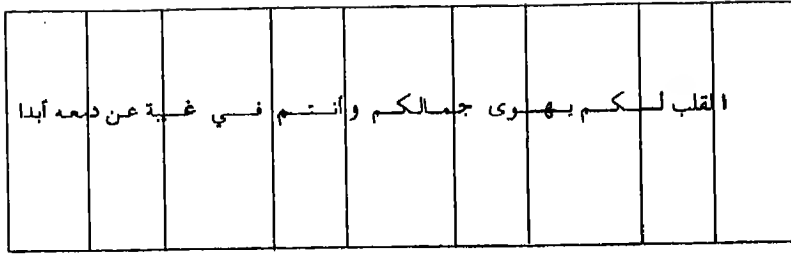 القلب لكم يهوى جمالكم وأنتم في غيبة عن دمعه أبدا